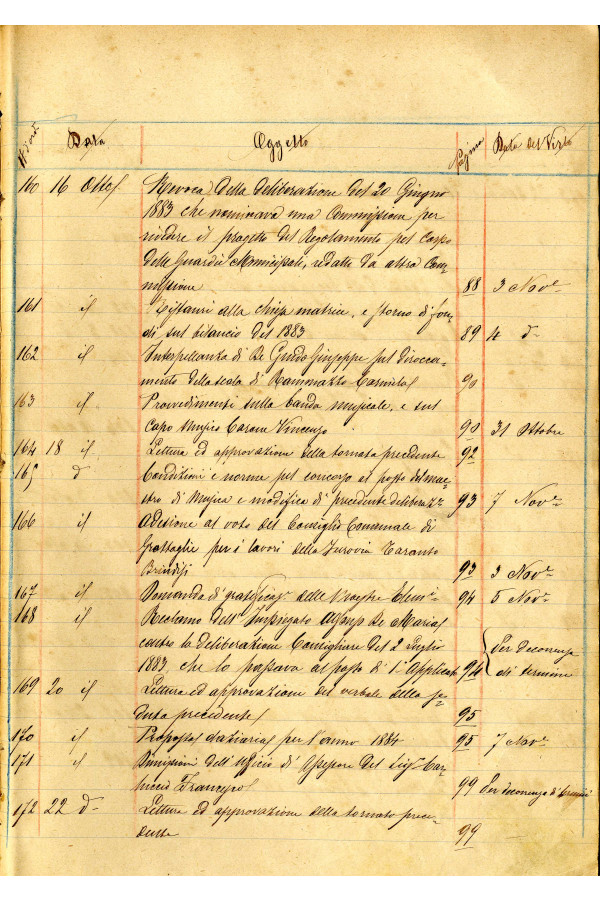 N. d'ord. Data Oggetto Pagina Data del Visto
160 16 Ott. Revoca della deliberazione del 20 Giugno
1883 che nominava una Commissione per
rivedere il progetto del Regolamento pel Corpo
delle Guardie Municipali, redatto da altra Com-
missione 88 3 Nov.e
161 id Restauri alla chiesa matrice, e storno di fon-
di sul bilancio del 1883 89 4 d°
162 id Interpellanza di De Giuseppe sul dirocca-
mento della scala di Carmela 90
163 id Provvedimenti sulla banda musicale, e sul
Capo Musica Vincenzo 90 31 Ottobre
164 18 id Lettura ed approvazione della tornata precedente 92
165 d° Condizioni e norme pel concorso al posto del mae-
stro di Musica e modifica di precedente deliberaz.e 93 7 Nov.e
166 id Adesione al voto del Consiglio Comunale di
Grottaglie per i lavori della Ferrovia Taranto
Brindisi 93 3 Nov.e
167 id Domanda di gratificaz. delle Maestre Elem.i 94 5 Nov.e
168 id Reclamo dell'Impiegato Alfonso De Maria
contro la deliberazione Consigliare del 2 Luglio
1883, che lo passava al posto di 1° Applicato 94 Per decorrenza
di termini
169 20 id Lettura ed approvazione del verbale della se-
duta precedente 95
170 id Proposta daziaria per l'anno 1884 95 7 Nov.e
171 id Dimissioni dell'Ufficio di Assessore del Sig. Car-
lucci Francesco 99 Per decorrenza di termini
172 22 d° Lettura ed approvazione della tornata prece-
dente 99